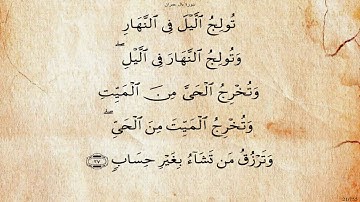 سورة آل عمران
تُولِجُ ٱلَّيْلَ فِى ٱلنَّهَارِ
وَتُولِجُ ٱلنَّهَارَ فِى ٱلَّيْلِ ۖ
وَتُخْرِجُ ٱلْحَىَّ مِنَ ٱلْمَيِّتِ
وَتُخْرِجُ ٱلْمَيِّتَ مِنَ ٱلْحَىِّ ۖ
وَتَرْزُقُ مَن تَشَآءُ بِغَيْرِ حِسَابٍ ٢٧